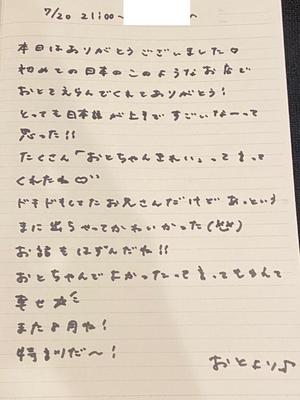 7/20 21:00〜 〜
本日はありがとうございました♡
初めての日本のこのようなお店で
おとをえらんでくれてありがとう!
とっても日本語が上手ですごいなーって
思った!!
たくさん「おとちゃんきれい」って言って
くれたね♡
ドキドキしてたお兄さんだけどあっという
まに出ちゃってかわいかった
お話もはずんだね!!
おとちゃんでよかったって言ってもらえて
幸せ☆
また8月ね!
待ってるだ〜!
おとより♪